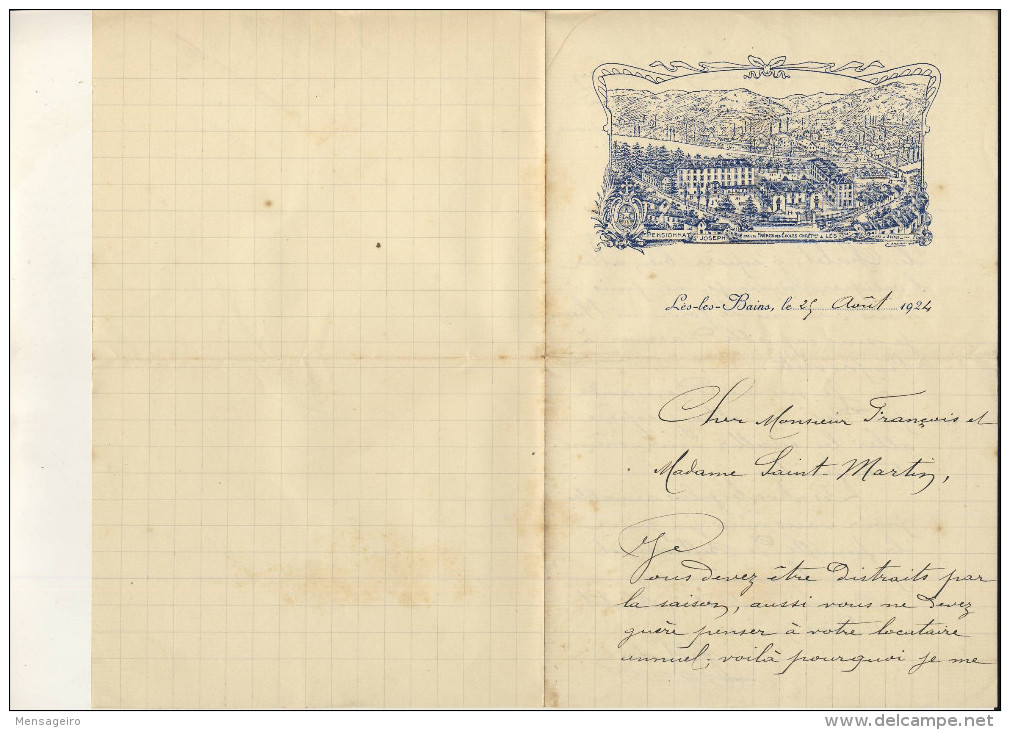 PENSIONNAT St JOSEPH
Lès-les-Bains, le 25 Août 1924
Cher Monsieur François et
Madame Saint-Martin,
Je
Vous devez être distraits par
la saison, aussi vous ne devez
guère penser à votre locataire
annuel; voilà pourquoi je me
Mensageiro
delcampe.net